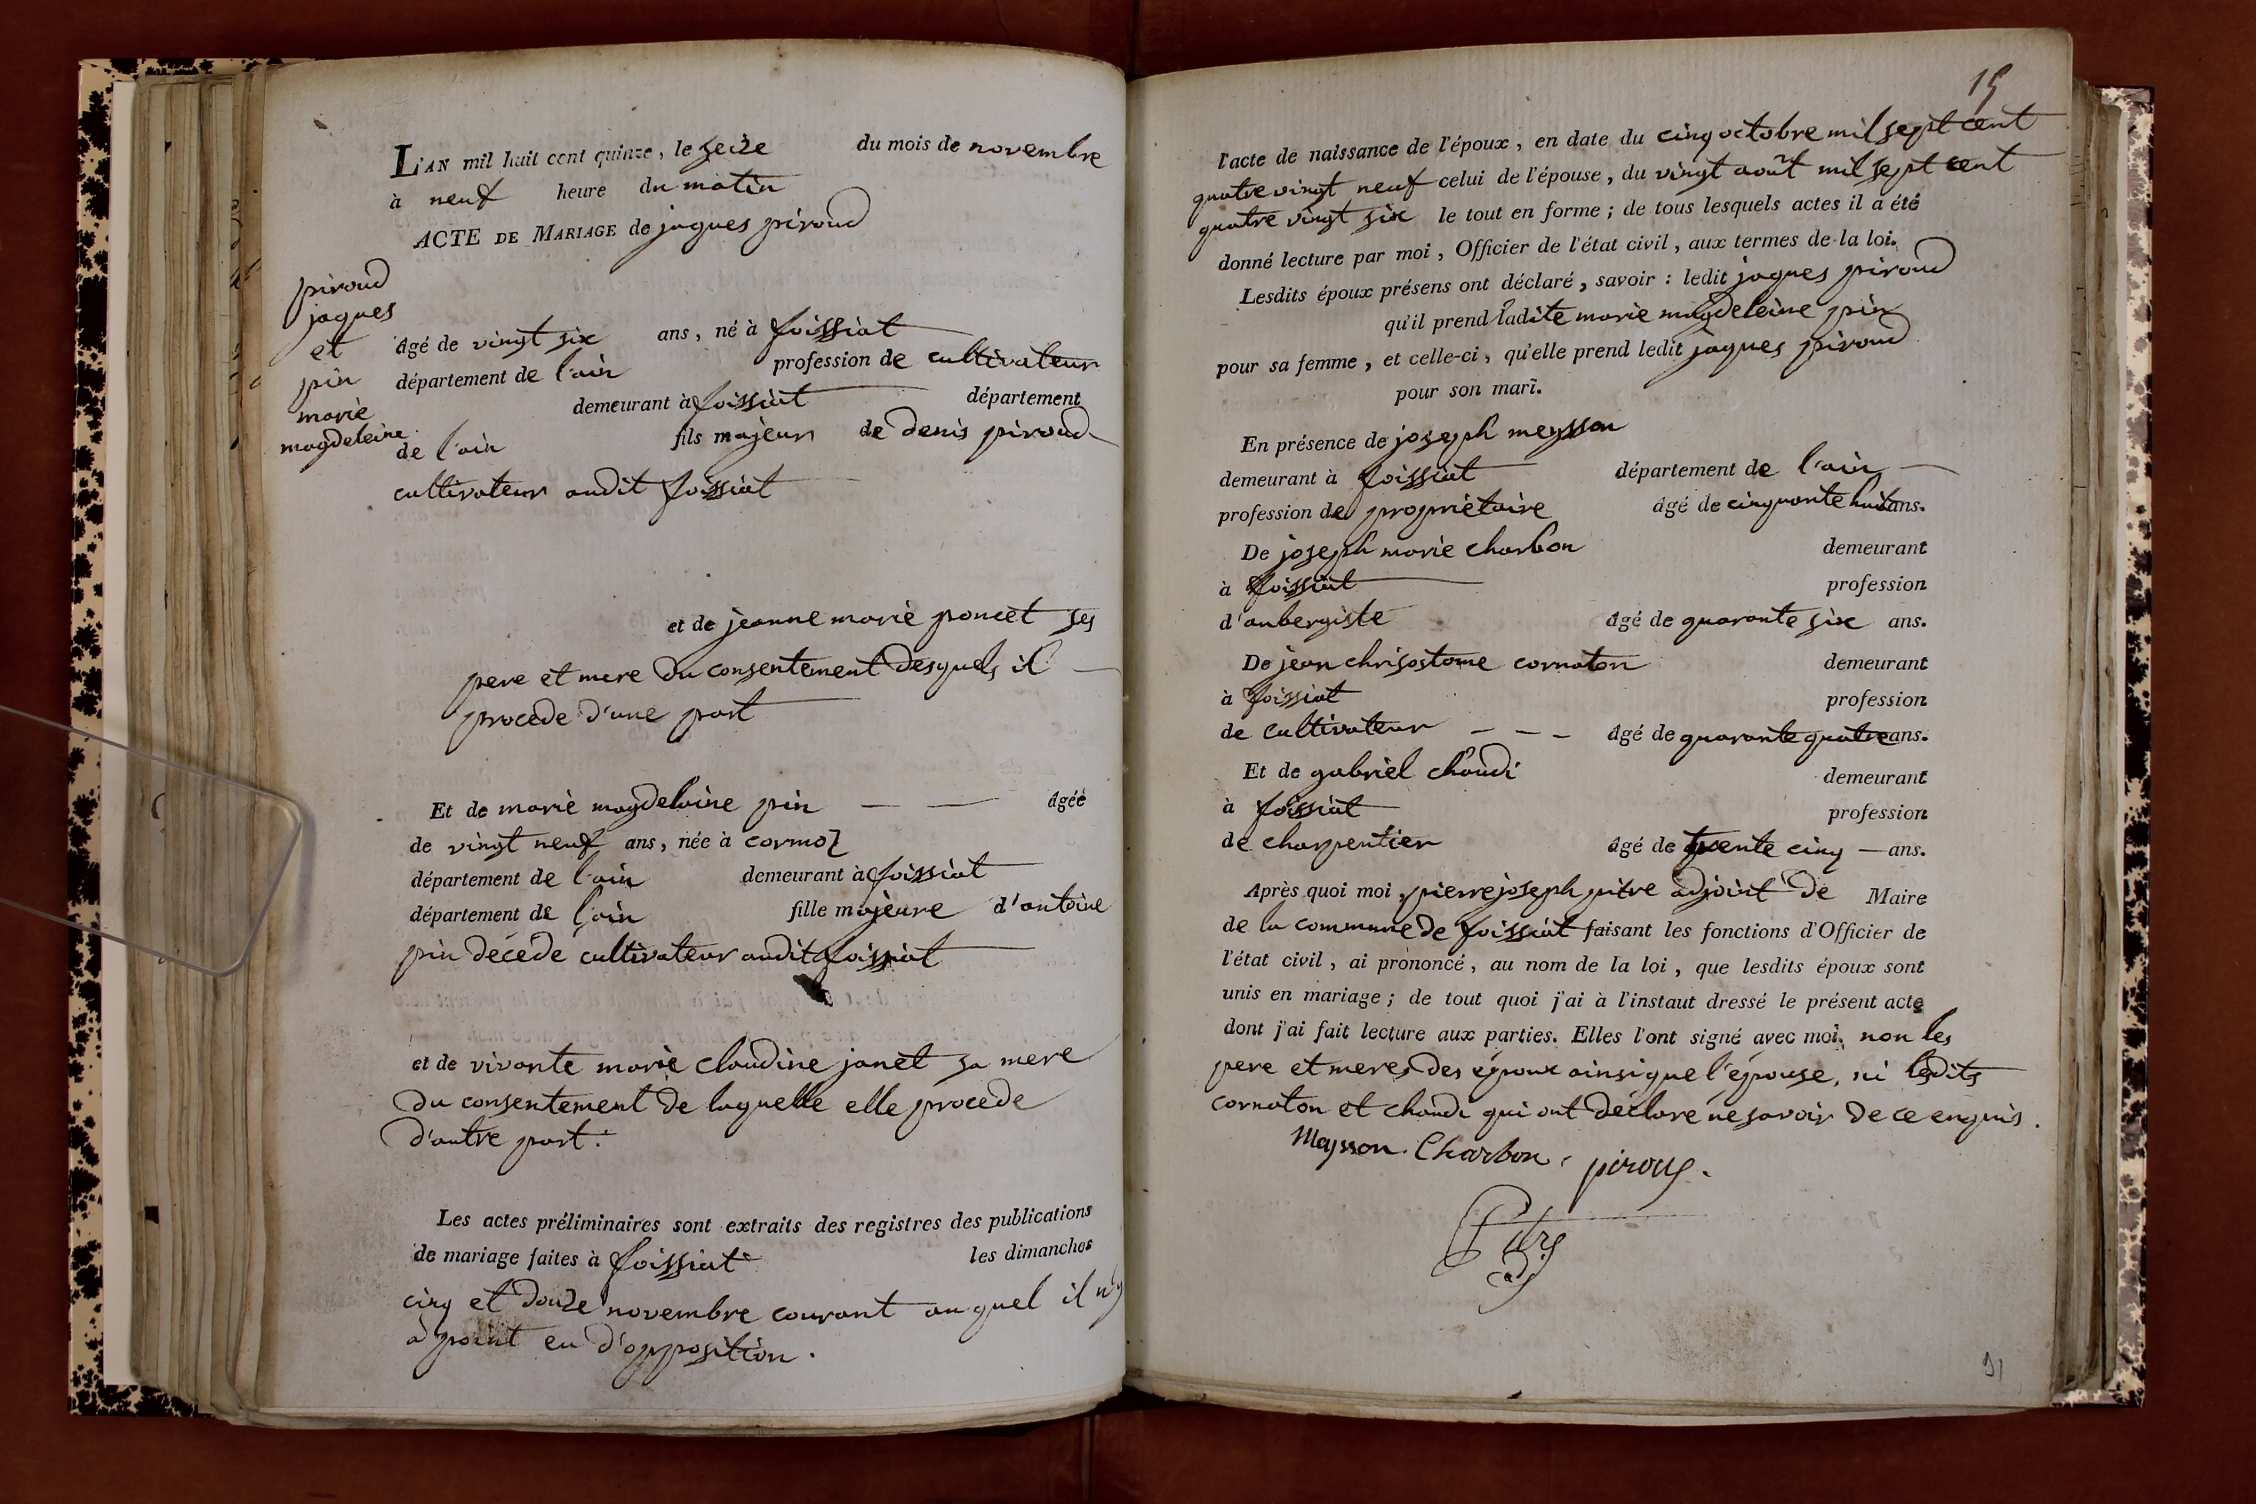 L'AN mil huit cent quinze, le seize du mois de novembre
à neuf heure du matin
ACTE DE MARIAGE de jaques piroud
piroud
jaques
et
pin
marie
magdeleine
âgé de vingt six ans, né à foissiat
département de l'ain profession de cultivateur
demeurant à foissiat département
de l'ain fils majeur de denis piroud
cultivateur audit foissiat
et de jeanne marie poncet ses
pere et mere du consentement desquels il
procede d'une part
Et de marie magdelaine pin âgéé
de vingt neuf ans, née à cormoz
département de l'ain demeurant à foissiat
département de l'ain fille majeure d'antoine
pin décédé cultivateur audit foissiat
et de vivante marie claudine janet sa mere
du consentement de laquelle elle procede
d'autre part.
Les actes préliminaires sont extraits des registres des publications
de mariage faites à foissiat les dimanches
cinq et douze novembre courant auquel il n'y
a point eu d'opposition.
15
l'acte de naissance de l'époux, en date du cinq octobre mil sept cent
quatre vingt neuf celui de l'épouse, du vingt août mil sept cent
quatre vingt six le tout en forme; de tous lesquels actes il a été
donné lecture par moi, Officier de l'état civil, aux termes de la loi.
Lesdits époux présens ont déclaré, savoir: ledit jaques piroud
qu'il prend ladite marie magdeleine pin
pour sa femme, et celle-ci, qu'elle prend ledit jaques piroud
pour son mari.
En présence de joseph meysson
demeurant à foissiat département de l'ain
profession de propriétaire âgé de cinquante huit ans.
De joseph marie charbon demeurant
à foissiat profession
d'aubergiste âgé de quarante six ans.
De jean chrisostome cornaton demeurant
à foissiat profession
de cultivateur âgé de quarante quatre ans.
Et de gabriel chaudi demeurant
à foissiat profession
de charpentier âgé de trente cinq ans.
Après quoi moi, pierre joseph pitre adjoint de Maire
de la commune de foissiat faisant les fonctions d'Officier de
l'état civil, ai prononcé, au nom de la loi, que lesdits époux sont
unis en mariage; de tout quoi j'ai à l'instaut dressé le présent acte
dont j'ai fait lecture aux parties. Elles l'ont signé avec moi, non les
pere et meres des époux ainsi que l'épouse, ni lesdits
cornaton et chaudi qui ont déclaré ne savoir de ce enquis.
Meysson. Charbon, piroud.